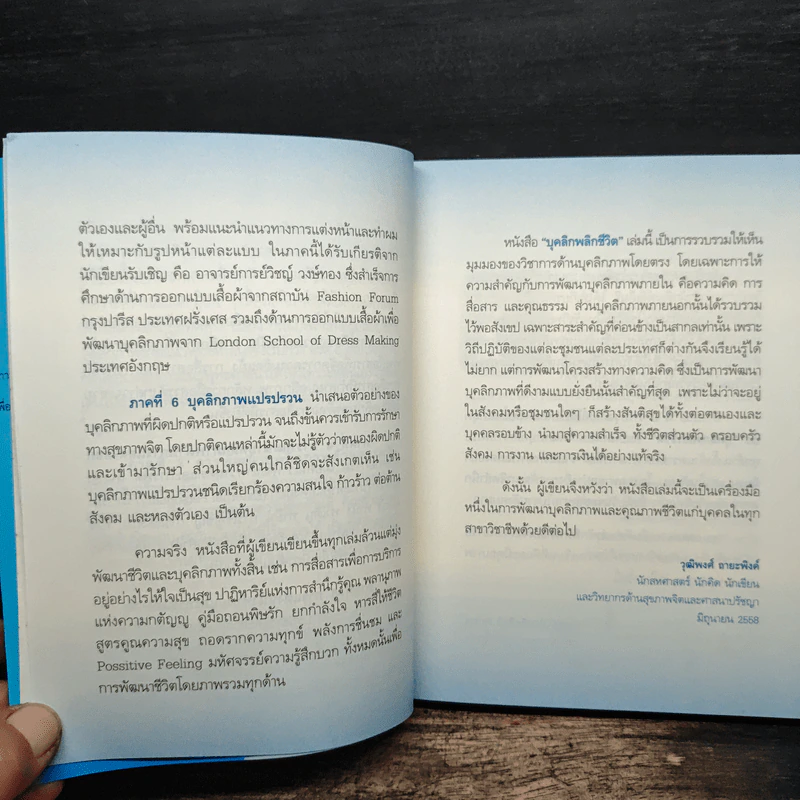 ตัวเองและผู้อื่น พร้อมแนะนำแนวทางการแต่งหน้าและทำผม
ให้เหมาะกับรูปหน้าแต่ละแบบ ในภาคนี้ได้รับเกียรติจาก
นักเขียนรับเชิญ คือ อาจารย์การย์วิชญ์ วงษ์ทอง ซึ่งสำเร็จการ
ศึกษาด้านการออกแบบเสื้อผ้าจากสถาบัน Fashion Forum
กรุงปารีส ประเทศฝรั่งเศส รวมถึงด้านการออกแบบเสื้อผ้าเพื่อ
พัฒนาบุคลิกภาพจาก London School of Dress Making
ประเทศอังกฤษ
ภาคที่ 6 บุคลิกภาพแปรปรวน นำเสนอตัวอย่างของ
บุคลิกภาพที่ผิดปกติหรือแปรปรวน จนถึงขั้นควรเข้ารับการรักษา
ทางสุขภาพจิต โดยปกติคนเหล่านี้มักจะไม่รู้ตัวว่าตนเองผิดปกติ
และเข้ามารักษา ส่วนใหญ่คนใกล้ชิดจะสังเกตเห็น เช่น
บุคลิกภาพแปรปรวนชนิดเรียกร้องความสนใจ ก้าวร้าว ต่อต้าน
สังคม และหลงตัวเอง เป็นต้น
ความจริง หนังสือที่ผู้เขียนเขียนขึ้นทุกเล่มล้วนแต่มุ่ง
พัฒนาชีวิตและบุคลิกภาพทั้งสิ้น เช่น การสื่อสารเพื่อการบริการ
อยู่อย่างไรให้ใจเป็นสุข ปาฏิหาริย์แห่งการสำนึกรู้คุณ พลานุภาพ
แห่งความกตัญญู คู่มือถอนพิษรัก ยกกำลังใจ หารสี่ให้ชีวิต
สูตรคูณความสุข ถอดรากความทุกข์ พลังการชื่นชม และ
Possitive Feeling มหัศจรรย์ความรู้สึกบวก ทั้งหมดนั้นเพื่อ
การพัฒนาชีวิตโดยภาพรวมทุกด้าน
หนังสือ “บุคลิกพลิกชีวิต” เล่มนี้ เป็นการรวบรวมให้เห็น
มุมมองของวิชาการด้านบุคลิกภาพโดยตรง โดยเฉพาะการให้
ความสำคัญกับการพัฒนาบุคลิกภาพภายใน คือความคิด การ
สื่อสาร และคุณธรรม ส่วนบุคลิกภาพภายนอกนั้นได้รวบรวม
ไว้พอสังเขป เฉพาะสาระสำคัญที่ค่อนข้างเป็นสากลเท่านั้น เพราะ
วิถีปฏิบัติของแต่ละชุมชนแต่ละประเทศก็ต่างกันจึงเรียนรู้ได้
ไม่ยาก แต่การพัฒนาโครงสร้างทางความคิด ซึ่งเป็นการพัฒนา
บุคลิกภาพที่ดีงามแบบยั่งยืนนั้นสำคัญที่สุด เพราะไม่ว่าจะอยู่
ในสังคมหรือชุมชนใดๆ ก็สร้างสันติสุขได้ทั้งต่อตนเองและ
บุคคลรอบข้าง นำมาสู่ความสำเร็จ ทั้งชีวิตส่วนตัว ครอบครัว
สังคม การงาน และการเงินได้อย่างแท้จริง
ดังนั้น ผู้เขียนจึงหวังว่า หนังสือเล่มนี้จะเป็นเครื่องมือ
หนึ่งในการพัฒนาบุคลิกภาพและคุณภาพชีวิตแก่บุคคลในทุก
สาขาวิชาชีพด้วยดีต่อไป
วุฒิพงศ์ ถายะพิงค์
นักสหศาสตร์ นักคิด นักเขียน
และวิทยากรด้านสุขภาพจิตและศาสนาปรัชญา
มิถุนายน 2558